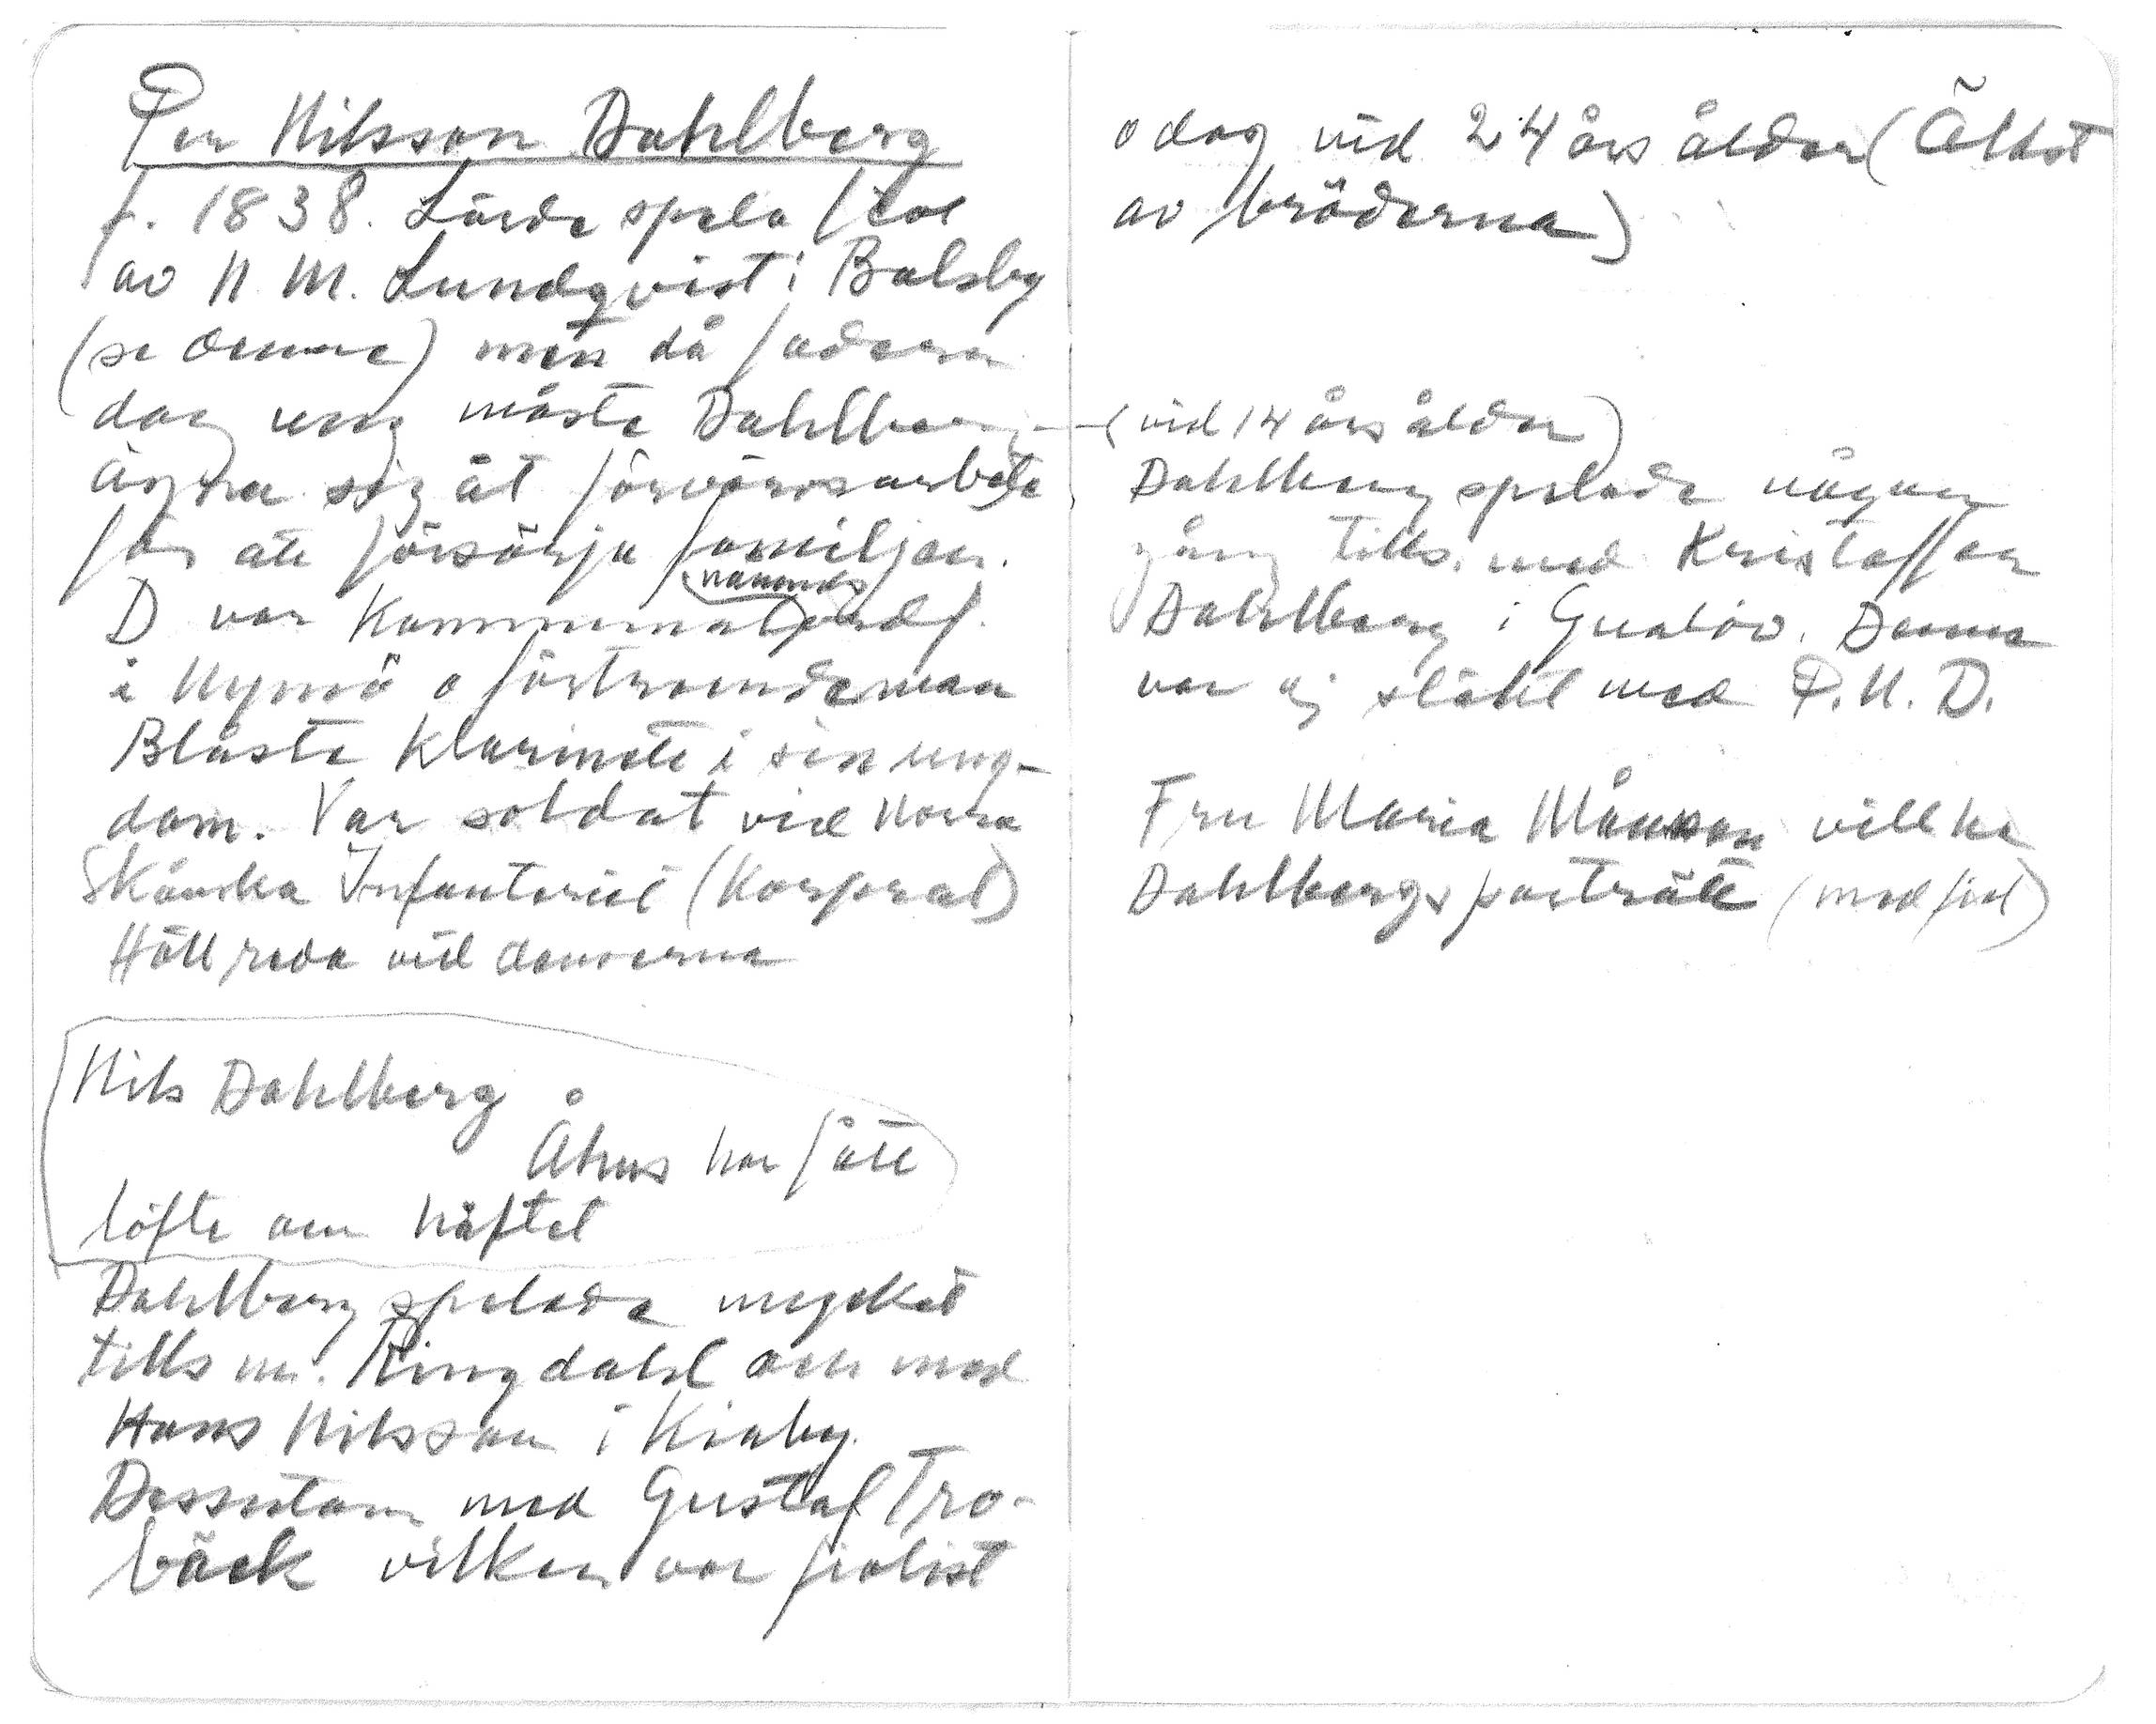 Per Nilsson Dahlberg
f. 1838. Lärde spela fiol
av N. M. Lundqvist i Balsby
(se denne) men då fadern
dog ung måste Dahlberg
ägna sig åt förvärvsarbete
för att försörja familjen.
D var Kommunal nämnds ordf.
i Nymö o förtroendeman
Blåste Klarinett i sin ung-
dom. Var soldat vid Norra
Skånska Infanteriet (Korpral)
Höll reda vid danserna
Nils Dahlberg
Åhus har fått
löfte om häftet
Dahlberg spelade mycket
tills m. Ringdahl och med
Hans Nilsson i Kiaby.
Dessutom med Gustaf Tro-
bäck vilken var fiolist
o dog vid 24 års ålder (Äldst
av bröderna)
(vid 14 års ålder)
Dahlberg spelade någon
gång tills. med Kristoffer
Dahlberg i Gualöv. Denne
var ej släkt med P. N. D.
Fru Maria Månsson vill ha
Dahlbergs porträtt (med fiol)